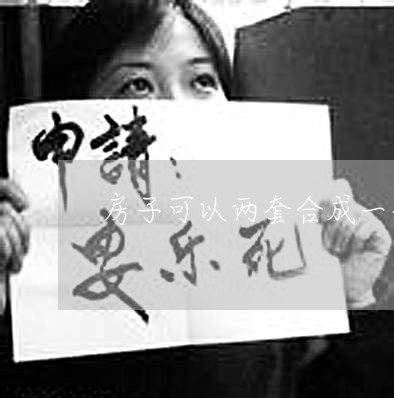 申請：
房子可以两套合成一
乐死